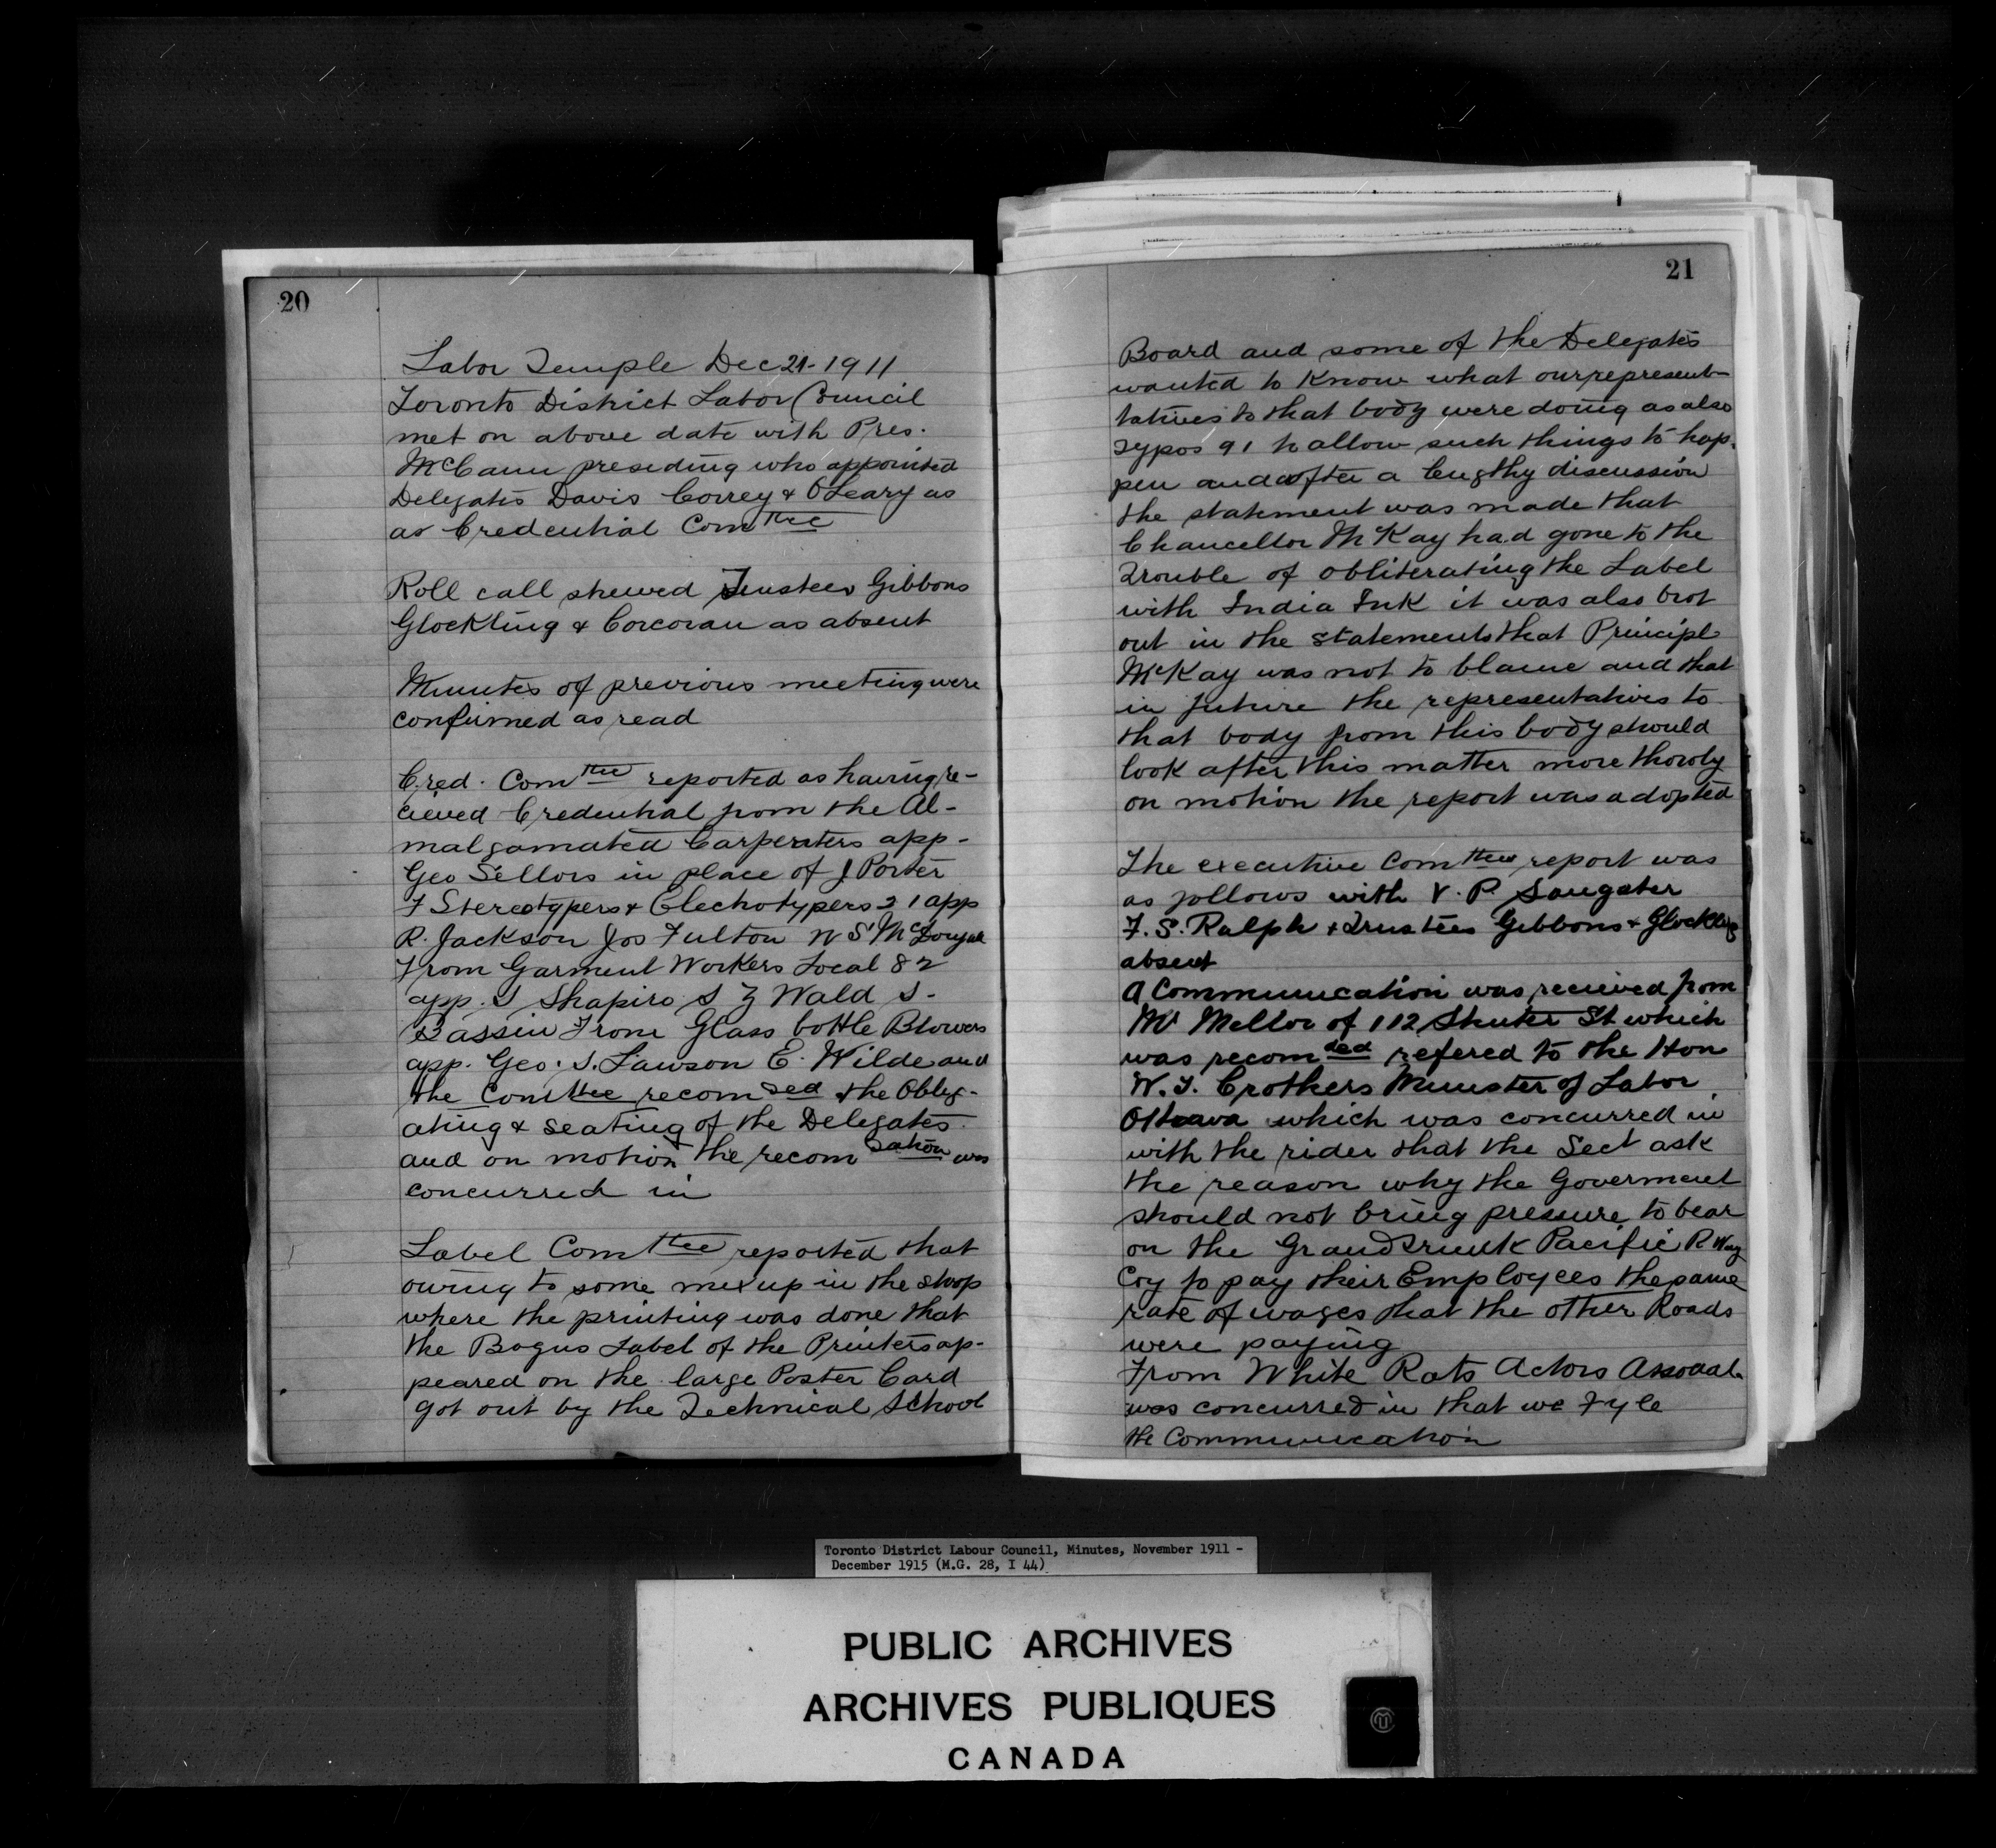 20
Labor Temple Dec 21-1911
Toronto District Labor Council
met on above date with Pres.
McCann presiding who appointed
Delegates Davis Correy & O'Leary as
as Credential Comttee
Roll call shewed Trustees Gibbons
Glockling & Corcoran as absent
Minutes of previous meeting were
confirmed as read
Cred. Comttee reported as having re-
cieved Credential from the Al-
malgamated Carpenters app-
Geo Sellors in place of J Porter
F Stereotypers & Electrotypers 21 app
R. Jackson Jos Fulton W S McDougal
From Garment Workers Local 82
app. S Shapiro S Z Wald S-
Bassin From Glass bottle Blowers
app. Geo. S. Lawson E. Wilde and
the Comttee recomded the Oblig-
ating & seating of the Delegates
and on motion the recomdation was
concurred in
Label Comttee reported that
owing to some mixup in the shop
where the printing was done that
the Bogus Label of the Printers ap-
peared on the large Poster Card
got out by the Technical School
21
Board and some of the Delegates
wanted to know what our represent-
tatives to that body were doing as also
Typos 91 to allow such things to hap-
pen and after a lengthy discussion
the statement was made that
Chancellor McKay had gone to the
Trouble of obliterating the Label
with India Ink it was also brot
out in the statements that Principl
McKay was not to blame and that
in future the representatives to
that body from this body should
look after this matter more thoroly
on motion the report was adopted
The executive Comttee report was
as follows with V. P. Sangster
F. S. Ralph & Trustees Gibbons & Glockling
absent
A Communication was recieved from
Mr Mellor of 112 Shuter St which
was recomded refered to the Hon
W. T. Crothers Minister of Labor
Ottawa which was concurred in
with the rider that the Sect ask
the reason why the Goverment
should not bring pressure to bear
on the Grand Trunk Pacific R Way
Coy to pay their Employees the same
rate of wages that the other Roads
were paying
From White Rats Actors
was concurred in that we Fyle
the Communication
Toronto District Labour Council, Minutes, November 1911 -
December 1915 (M.G. 28, I 44)
PUBLIC ARCHIVES
ARCHIVES PUBLIQUES
CANADA